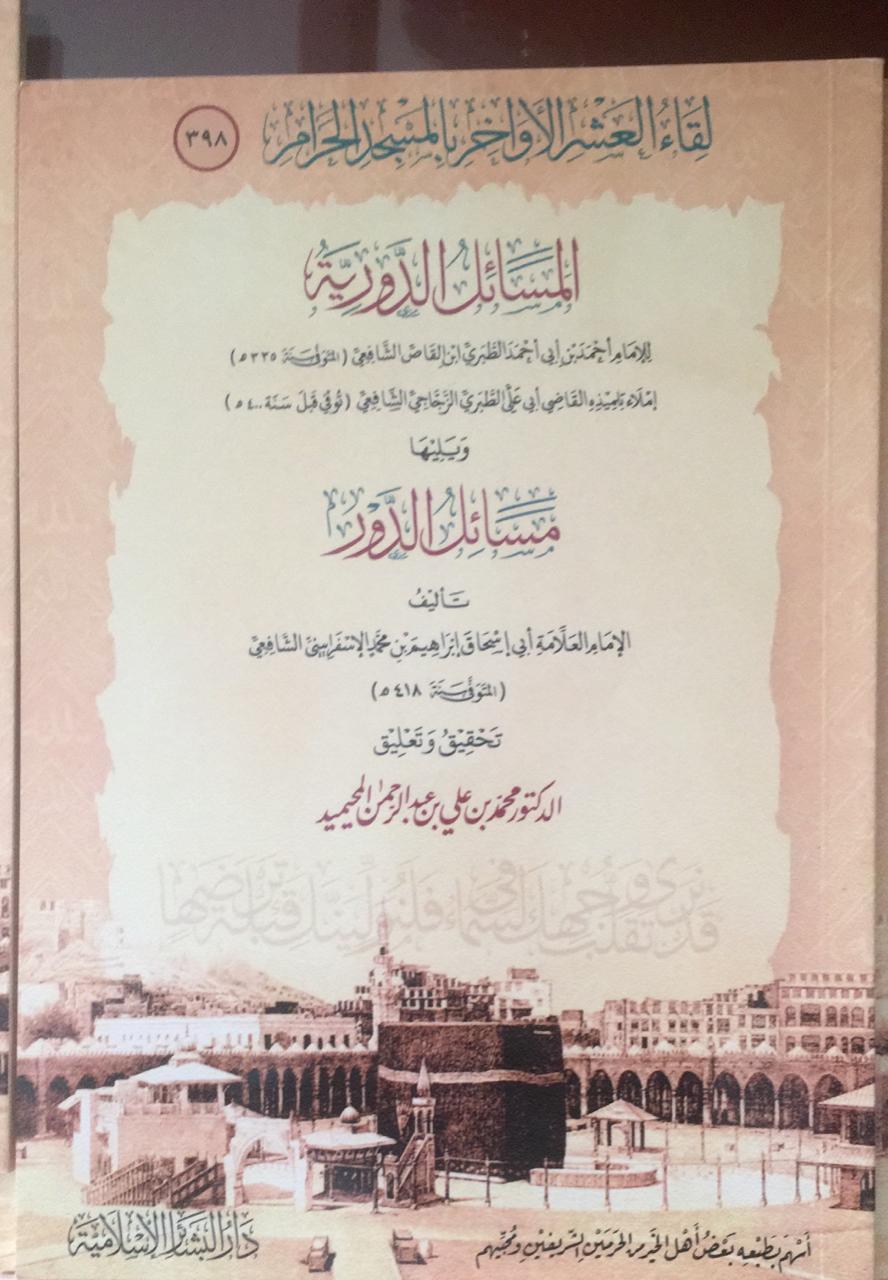 لِقَاءُ العَشْرِ الأَوَاخِرِ بِالمَسْجِدِ الحَرَامِ
٣٩٨
المَسَائِلُ الدَّوْرِيَّةُ
لِلإِمَامِ أَحْمَدَ بْنِ أَبِي أَحْمَدَ الطَّبَرِيِّ ابْنِ القَاصِّ الشَّافِعِيِّ (المُتَوَفَّى سَنَةَ ٣٣٥ ه)
إِمْلَاءِ تِلْمِيذِهِ القَاضِي أَبِي عَلِيٍّ الطَّبَرِيِّ الزَّجَّاجِيِّ الشَّافِعِيِّ (تُوُفِّيَ قَبْلَ سَنَةِ ٤٠٠ ه)
وَيَلِيْهَا
مَسَائِلُ الدَّوْرِ
تَأْلِيفُ
الإِمَامِ العَلَّامَةِ أَبِي إِسْحَاقَ إِبْرَاهِيمَ بْنِ مُحَمَّدٍ الإِسْفَرَايِنِيِّ الشَّافِعِيِّ
(المُتَوَفَّى سَنَةَ ٤١٨ ه)
تَحْقِيْقُ وَتَعْلِيْق
الدكتور محمد بن علي بن عبد الرحمن المحيميد
قد نرى تقلب وجهك في السماء فلنولينك قبلة ترضيها
أَسْهَمَ بِطَبْعِهِ بَعْضُ أَهْلِ الخَيْرِ مِنَ الحَرَمَيْنِ الشَّرِيفَيْنِ وَمُحِبِّيهِم
دَارُ البَشَائِرِ الإِسْلَامِيَّةِ